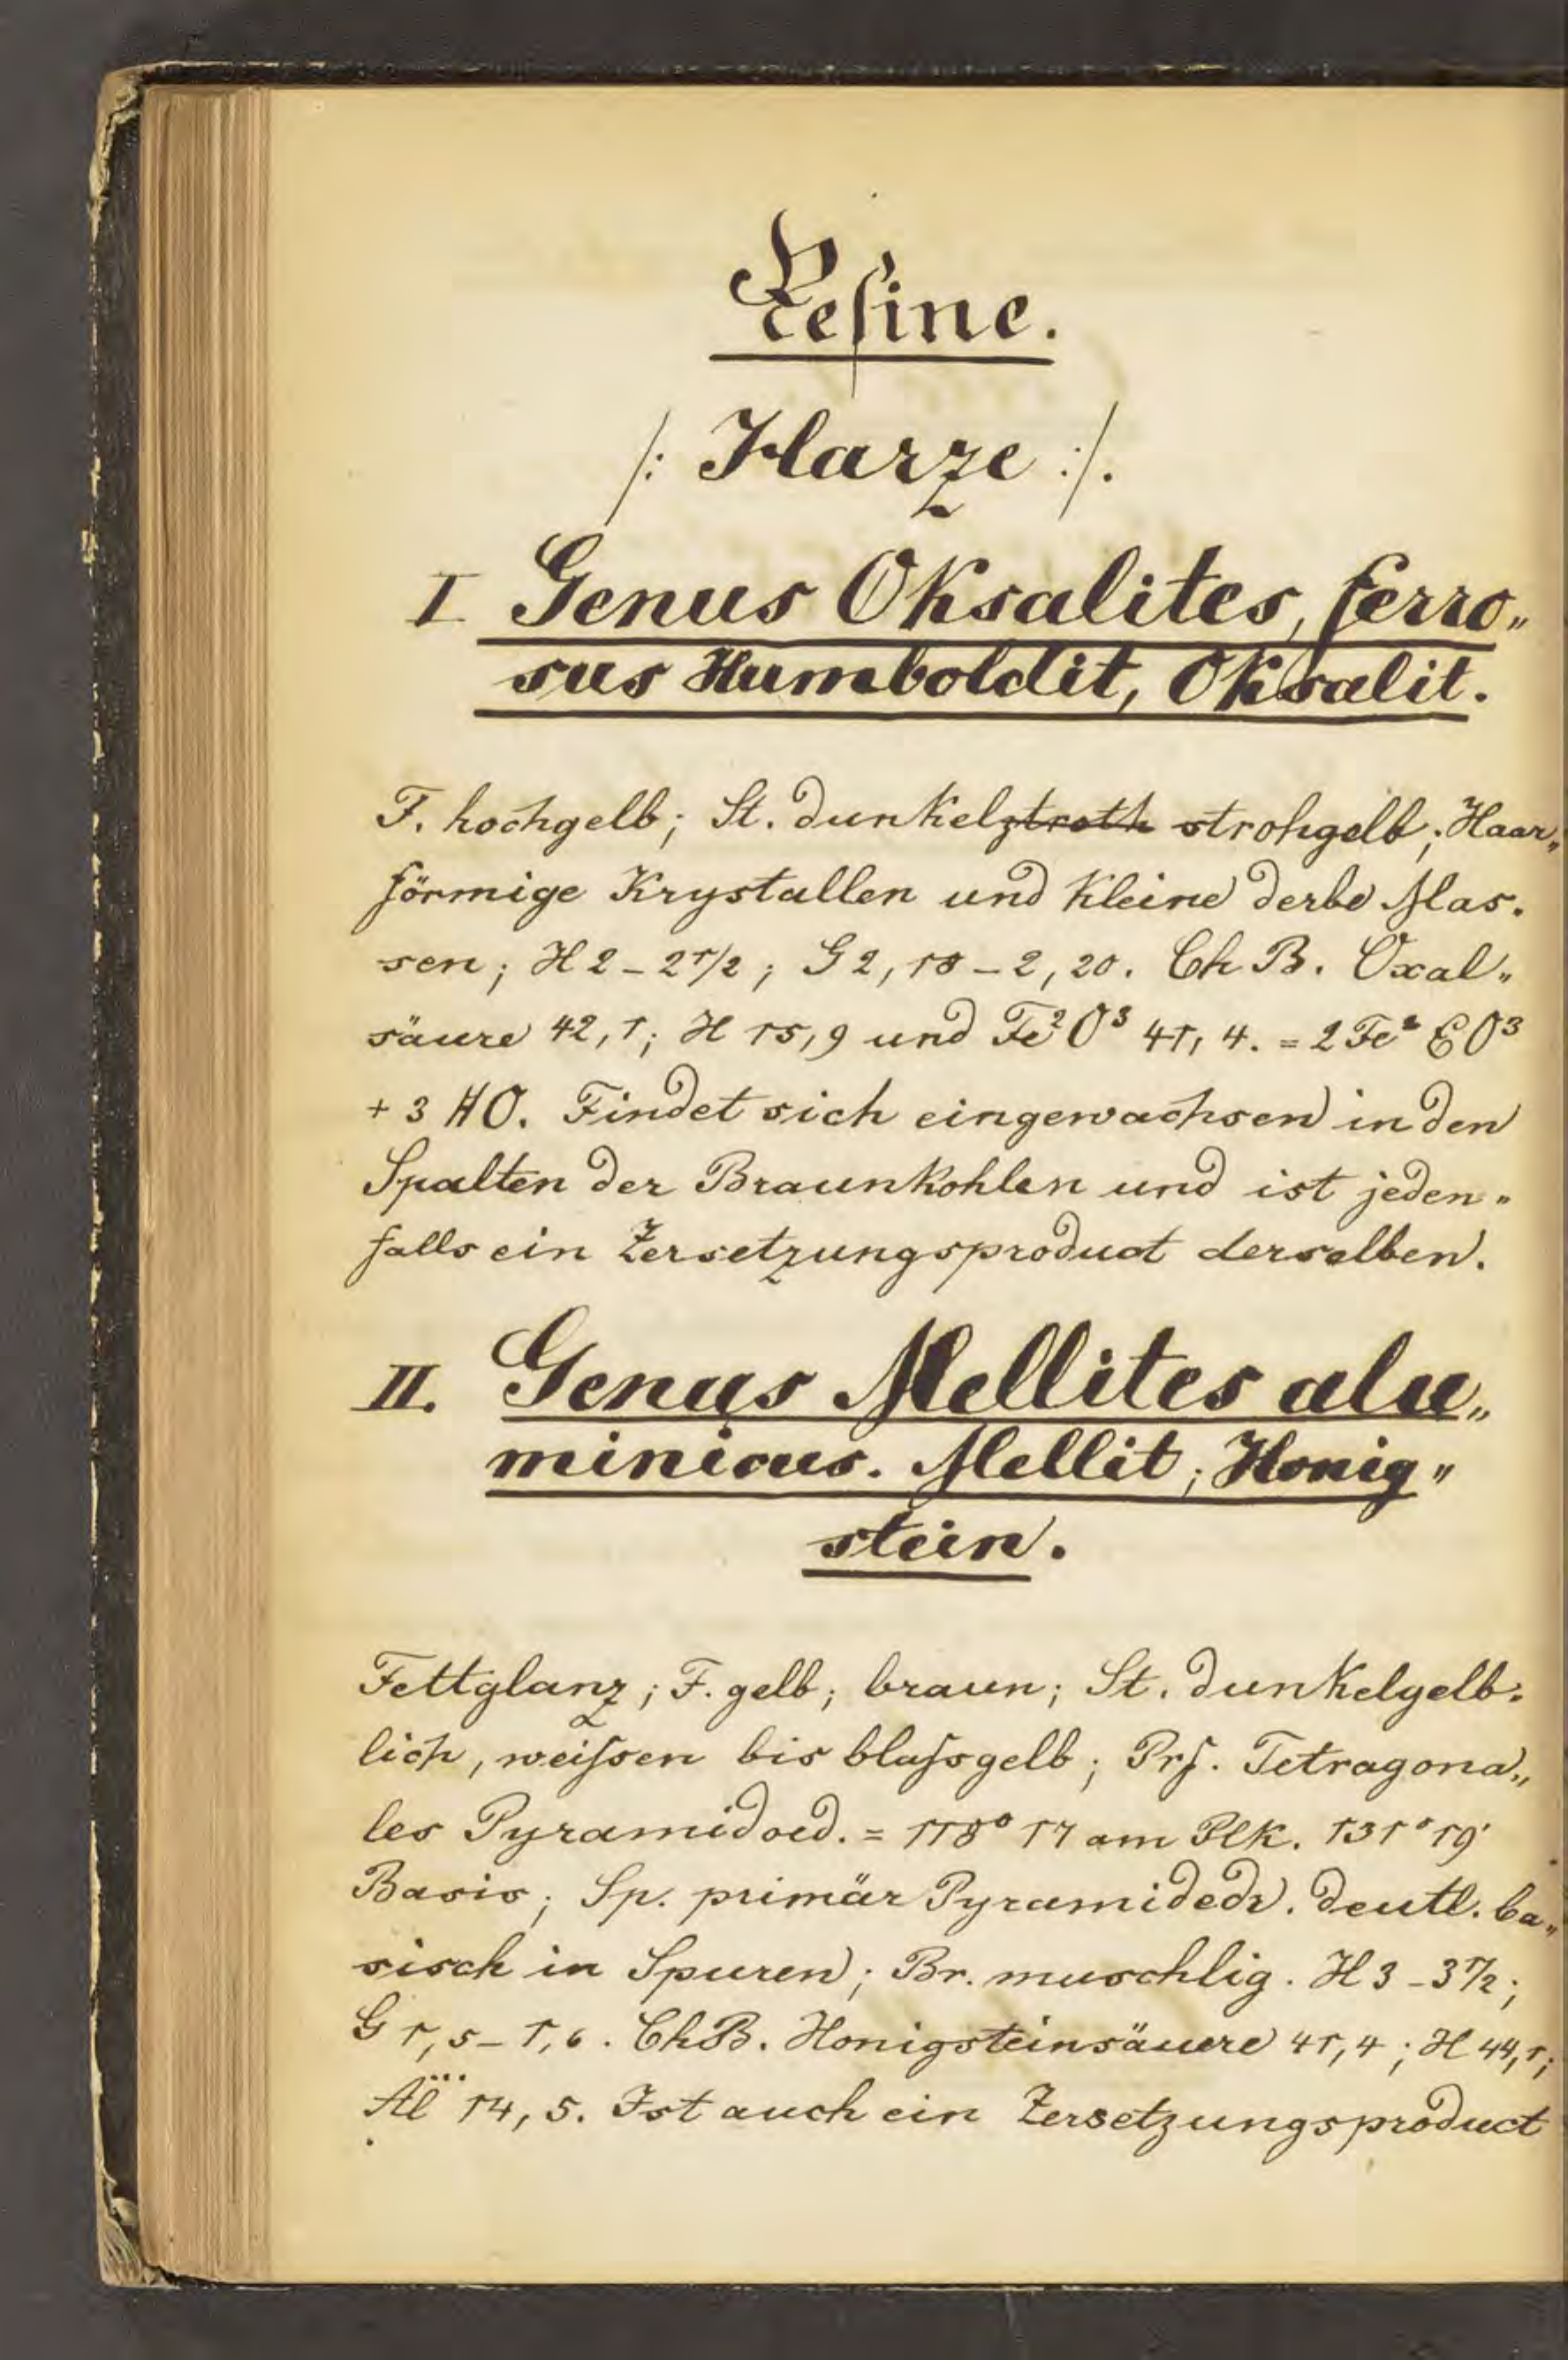 Resine.
/: Harze :/.
I Genus Oksalites, ferro„
sus Humboldit, Oksalit.
F. hochgelb; St. dunkelztroth strohgelb; Haar„
förmige Krystallen und kleine derbe Mas.
sen; H 2 - 2 1/2; G 2,18 - 2,20. Ch B. Oxal„
säure 42,1; H 15,9 und Fe² O³ 41,4. = 2 Fe² O³
+ 3 HO. Findet sich eingewachsen in den
Spalten der Braunkohlen und ist jeden„
falls ein Zersetzungsproduct derselben.
II. Genus Mellites alu„
minicus. Mellit; Honig„
stein.
Fettglanz; F. gelb; braun; St. dunkelgelb:
lich, weissen bis blassgelb; Prf. Tetragona„
les Pyramidoed. = 118° 17 am Plk. 131° 19'
Basis; Sp. primär Pyramidedr. deutl. ba„
sisch in Spuren; Br. muschlig. H 3 - 3 1/2;
G 1,5 - 1,6. ChB. Honigsteinsäuere 41,4; H 44,1;
Al 14,5. Ist auch ein Zersetzungsproduct